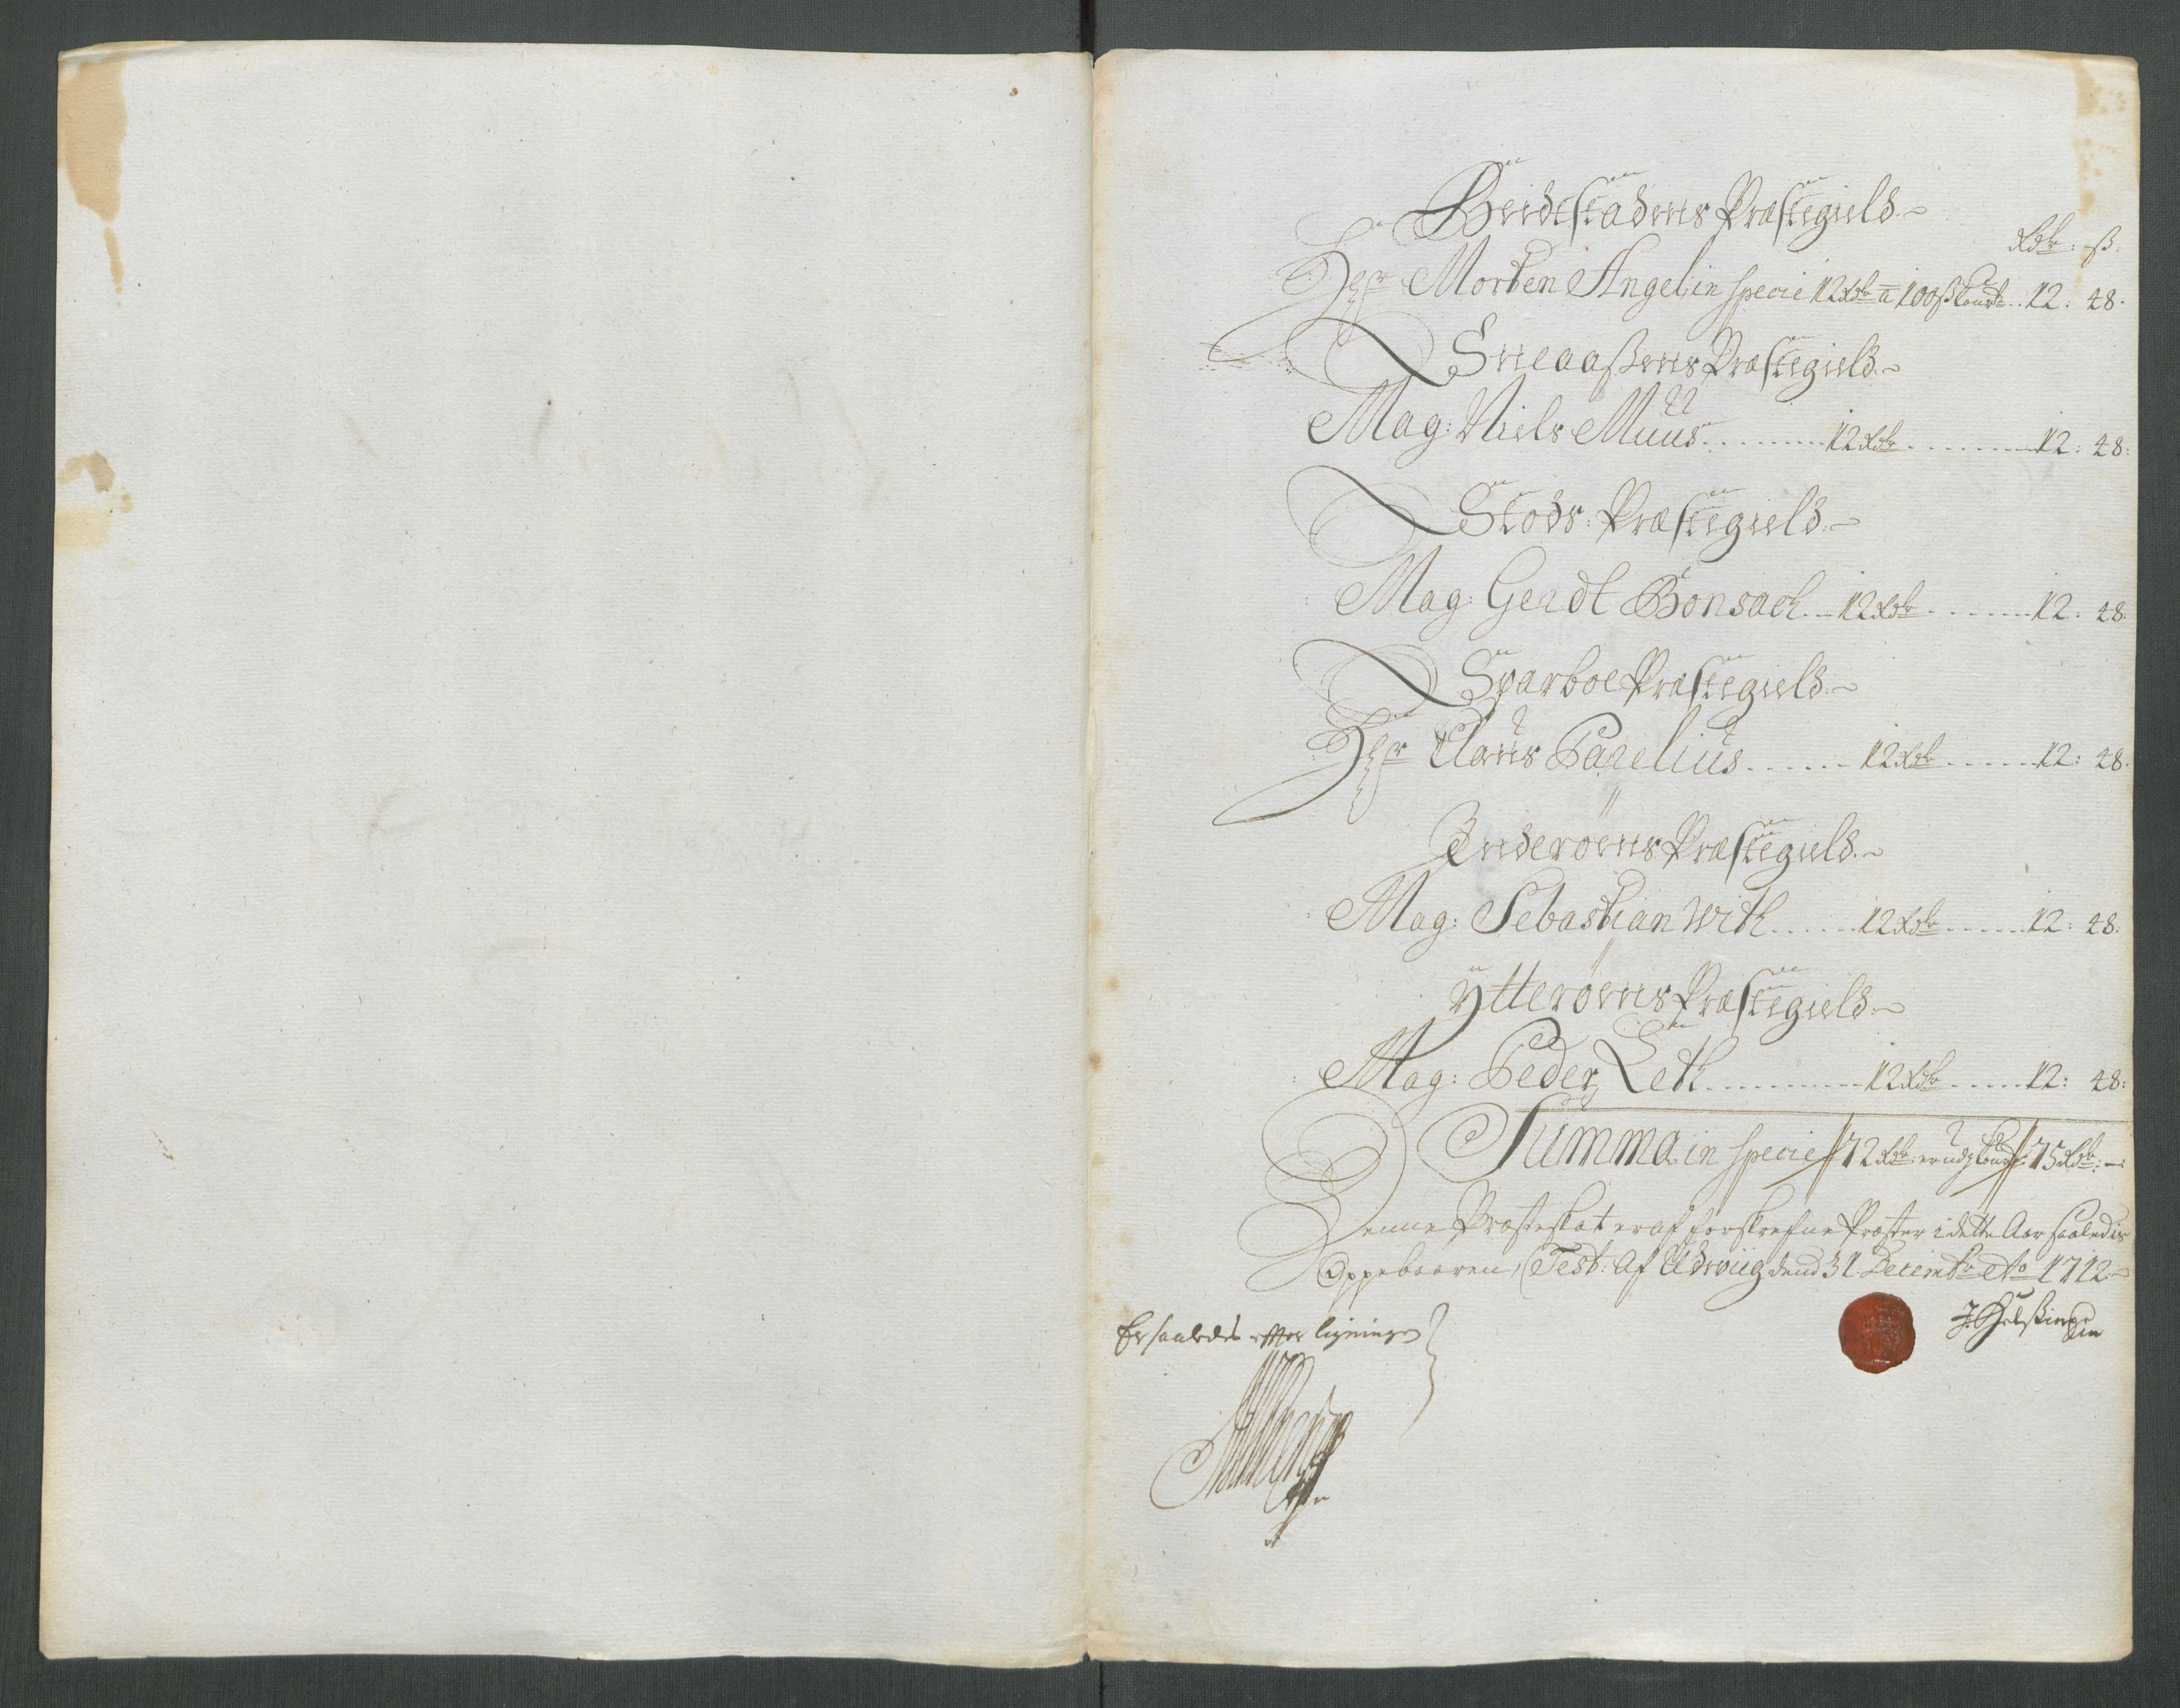 Beidstadens Præstegield.~
Rdr: ß.
Hr Morten Angel in specie 12 Rdr à 100 ß Court .. 12: 48.
Sneaaßens Præstegield.~
Mag: Niels Muus ........ 12 Rdr ........ 12: 48:
Stods: Præstegield.~
Mag: Gerdt Bonsach .. 12 Rdr ........ 12: 48.
Sparboe Præstegield.~
Hr Claus Parelius ...... 12 Rdr ...... 12: 48.
Inderøens Præstegield.~
Mag: Sebastian With ...... 12 Rdr ...... 12: 48.
Ytterøens Præstegield.~
Mag: Peder Leth .......... 12 Rdr ..... 12: 48:
Summa in specie 72 Rdr: er udj Court 75 Rdr: –:
Denne Præsteskat er af forskrefne Præster i dette Aar saaledis
Oppebaaren, Test: Af Udviig dend 31 Decembr Ao 1712.~
Er saaledes efter ligningen